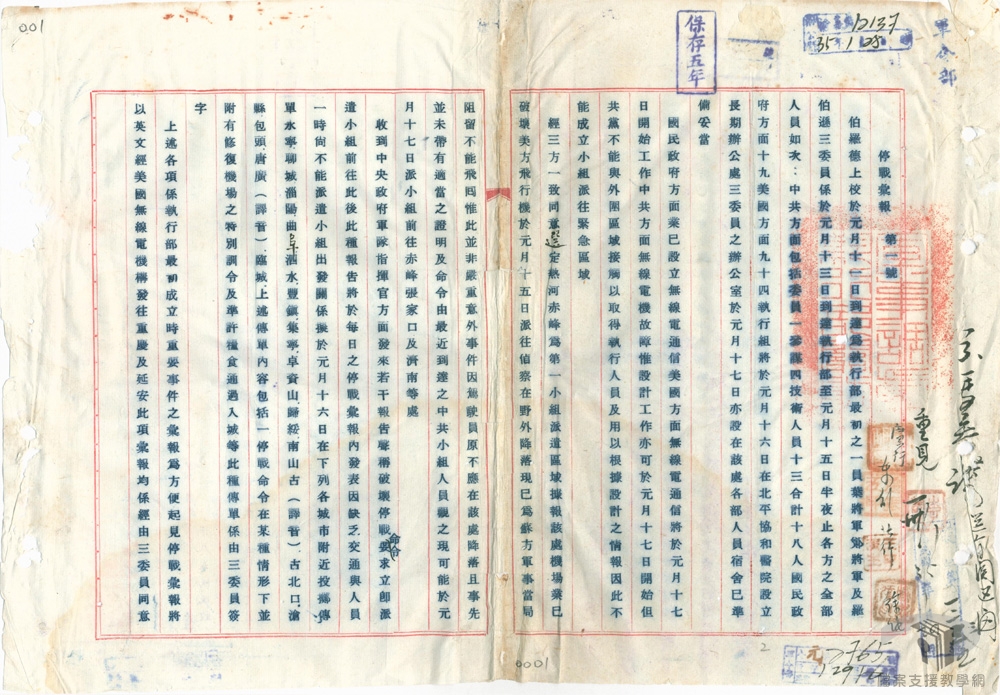 001
保存五年
D137
35 1 28
軍令部
停戰彙報　第一號
伯羅德上校於元月十一日到達爲執行部最初之一員葉將軍鄭將軍及羅
伯遜三委員係於元月十三日到達執行部至元月十五日半夜止各方之全部
人員如次：中共方面包括委員一參謀四技術人員十三合計十八人國民政
府方面十九美國方面九十四執行組將於元月十六日在北平協和醫院設立
長期辦公處三委員之辦公室於元月十七日亦設在該處各部人員宿舍已準
備妥當
國民政府方面業已設立無線電通信美國方面無線電通信將於元月十七
日開始工作中共方面無線電機故障惟設計工作亦可於元月十七日開始但
共黨不能與外圍區域接觸以取得執行人員及用以根據設計之情報因此不
能成立小組派往緊急區域
經三方一致同意選定熱河赤峰爲第一小組派遣區域據報該處機場業已
破壞美方飛行機於元月十五日派往偵察在野外降落現已爲蘇方軍事當局
阻留不能飛囘惟此並非嚴重意外事件因駕駛員原不應在該處降落且事先
並未帶有適當之證明及命令由最近到達之中共小組人員觀之現可能於元
月十七日派小組前往赤峰張家口及濟南等處
收到中央政府軍隊指揮官方面發來若干報告聲稱破壞停戰命令要求立卽派
遣小組前往此後此種報告將於每日之停戰彙報內發表因缺乏交通與人員
一時尙不能派遣小組出發關係擬於元月十六日在下列各城市附近投擲傳
單水寧聊城淄陽曲阜泗水豐鎭集寧卓資山歸綏南山古（譯音）古北口滄
縣包頭唐廣（譯音）臨城上述傳單內容包括一停戰命令在某種情形下並
附有修復機場之特別訓令及準許糧食通過入城等此種傳單係由三委員簽
字
上述各項係執行部最初成立時重要事件之彙報爲方便起見停戰彙報將
以英文經美國無線電機構發往重慶及延安此項彙報均係經由三委員同意
0001
2
檔案支援教學網